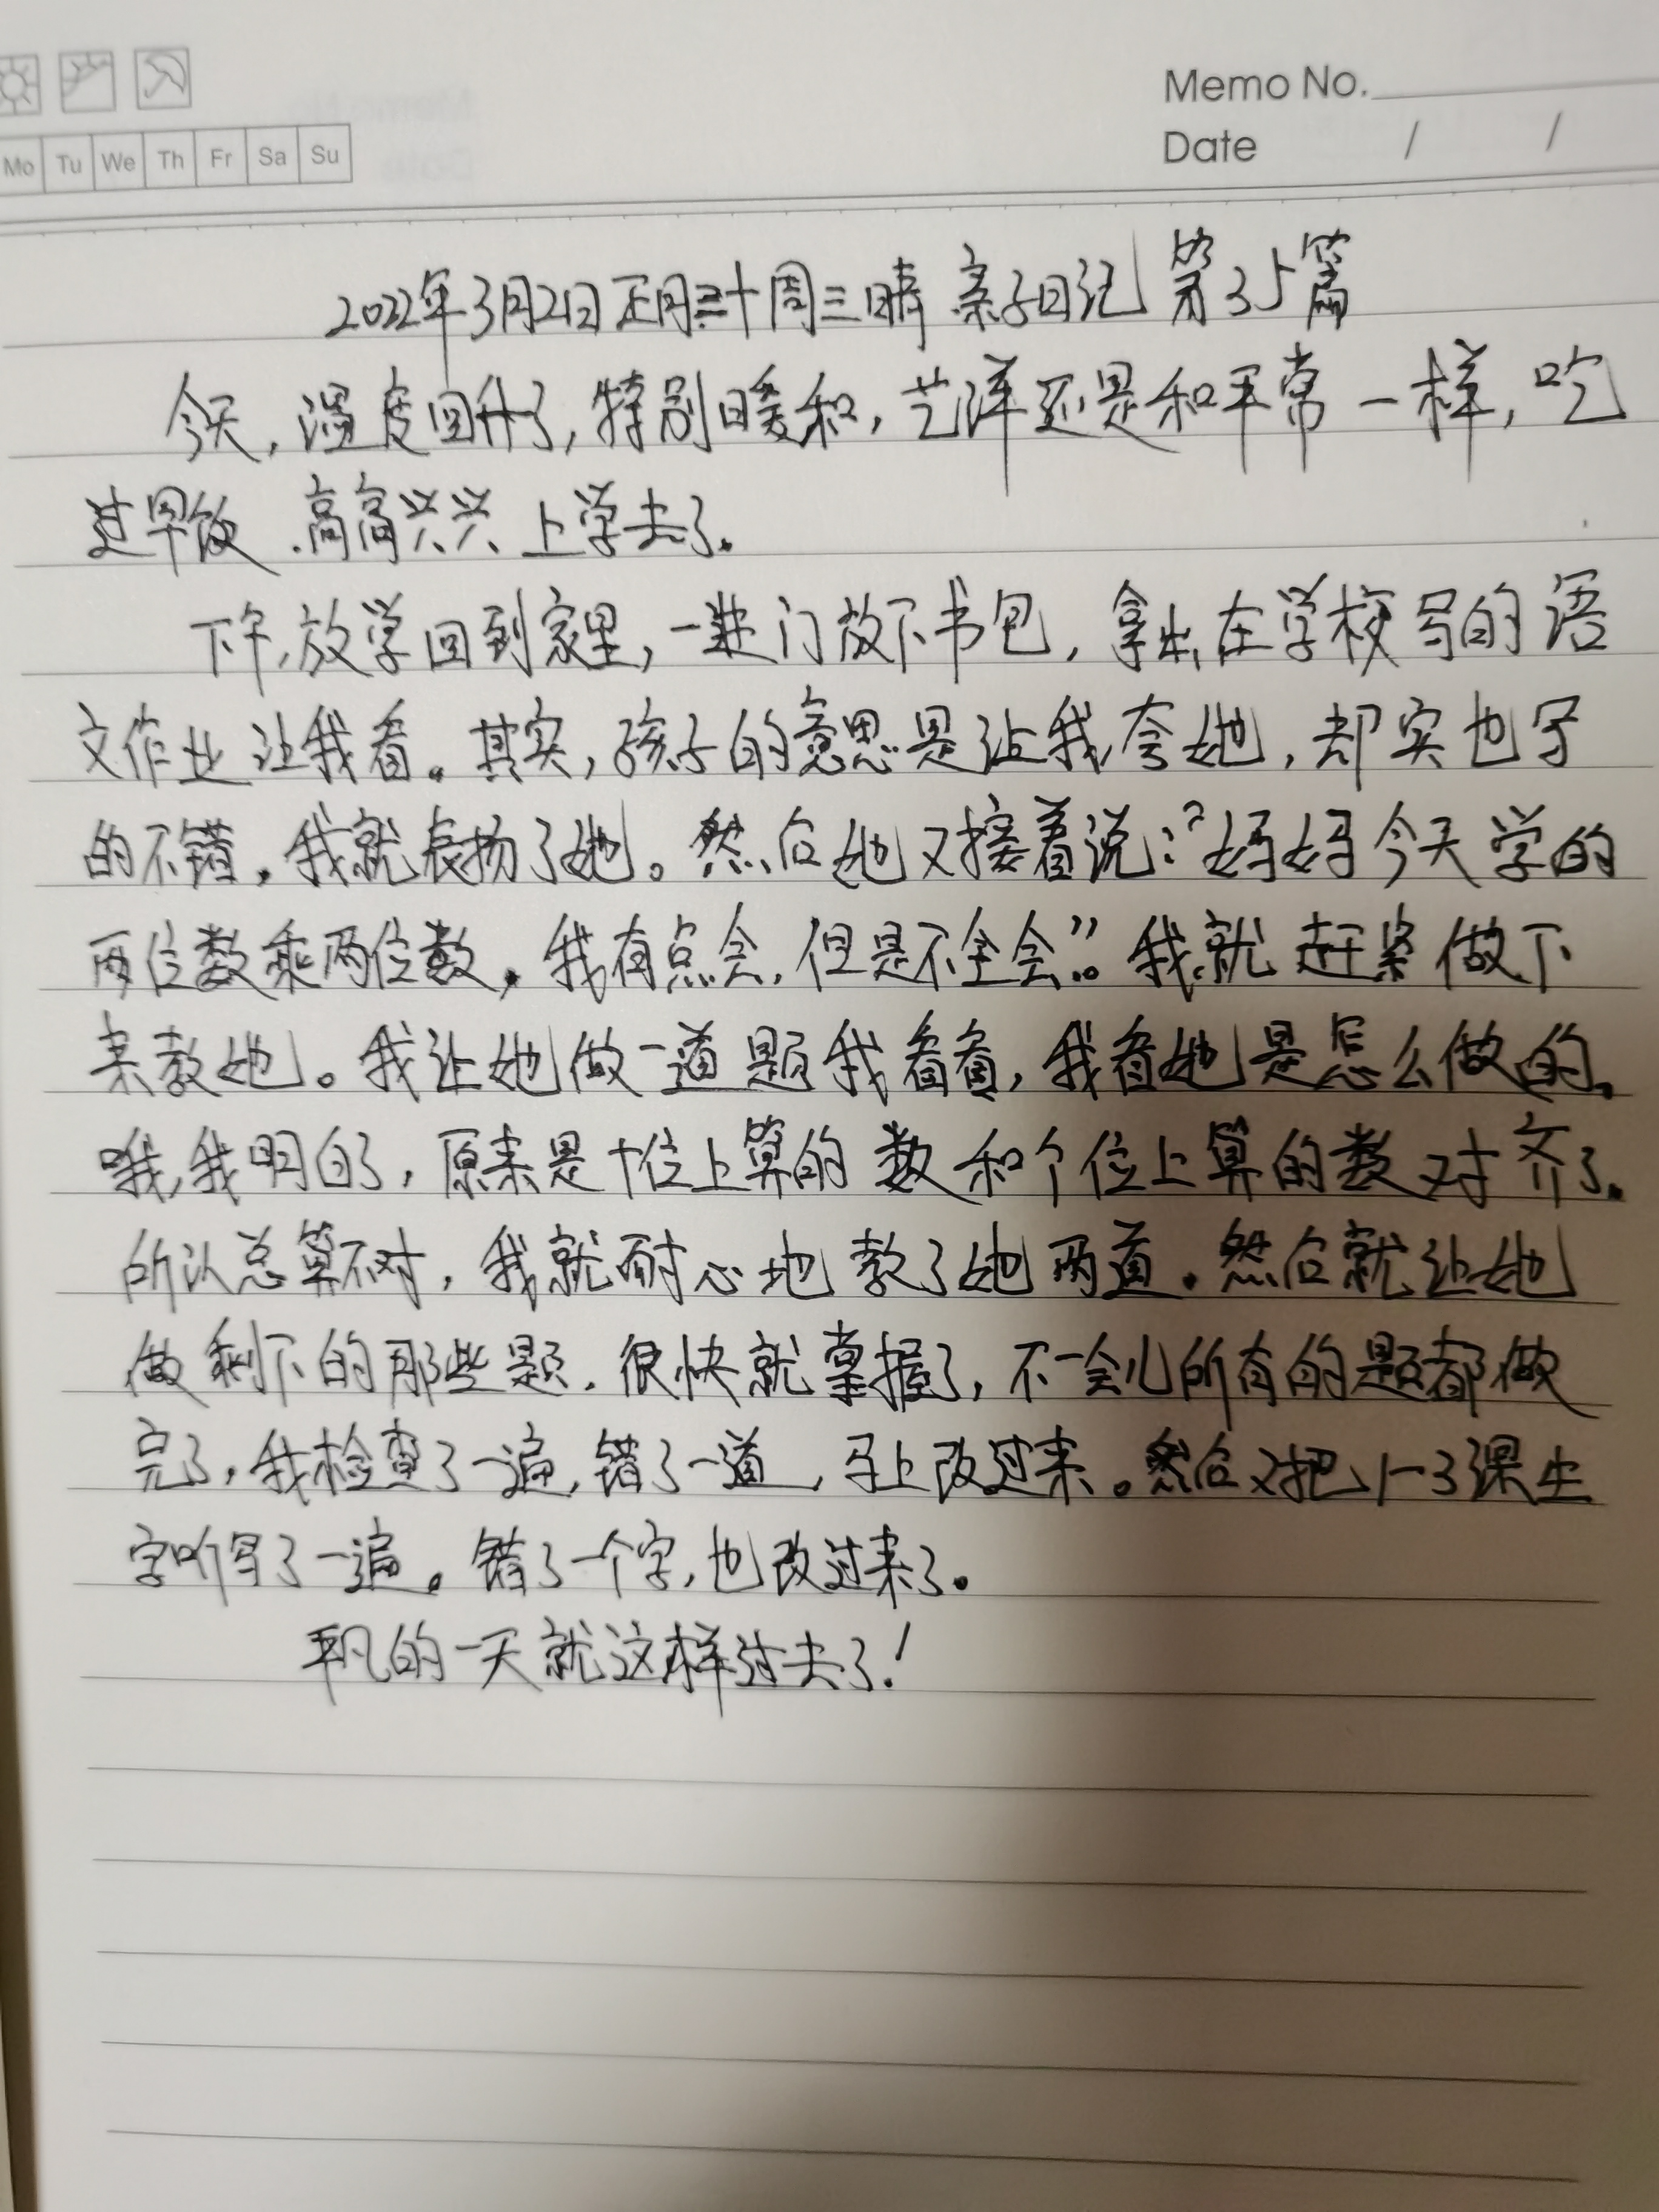 Memo No.
Mo Tu We Th Fr Sa Su
Date / /
2022年3月2日正月三十周三晴 亲子日记 第35篇
今天,温度回升了,特别暖和,艺洋还是和平常一样,吃
过早饭.高高兴兴上学去了.
下午,放学回到家里,一进门放下书包,拿出在学校写的语
文作业让我看。其实,孩子的意思是让我夸她,却实也写
的不错,我就表扬了她。然后她又接着说:“妈妈今天学的
两位数乘两位数,我有点会,但是不全会”。我就赶紧做下
来教她。我让她做一道题我看看,我看她是怎么做的。
哦,我明白了,原来是十位上算的数和个位上算的数对齐了.
所以总算不对,我就耐心地教了她两道.然后就让她
做剩下的那些题.很快就掌握了,不一会儿所有的题都做
完了,我检查了一遍,错了一道,马上改过来。然后又把1-3课生
字听写了一遍。错了一个字,也改过来了。
平凡的一天就这样过去了!